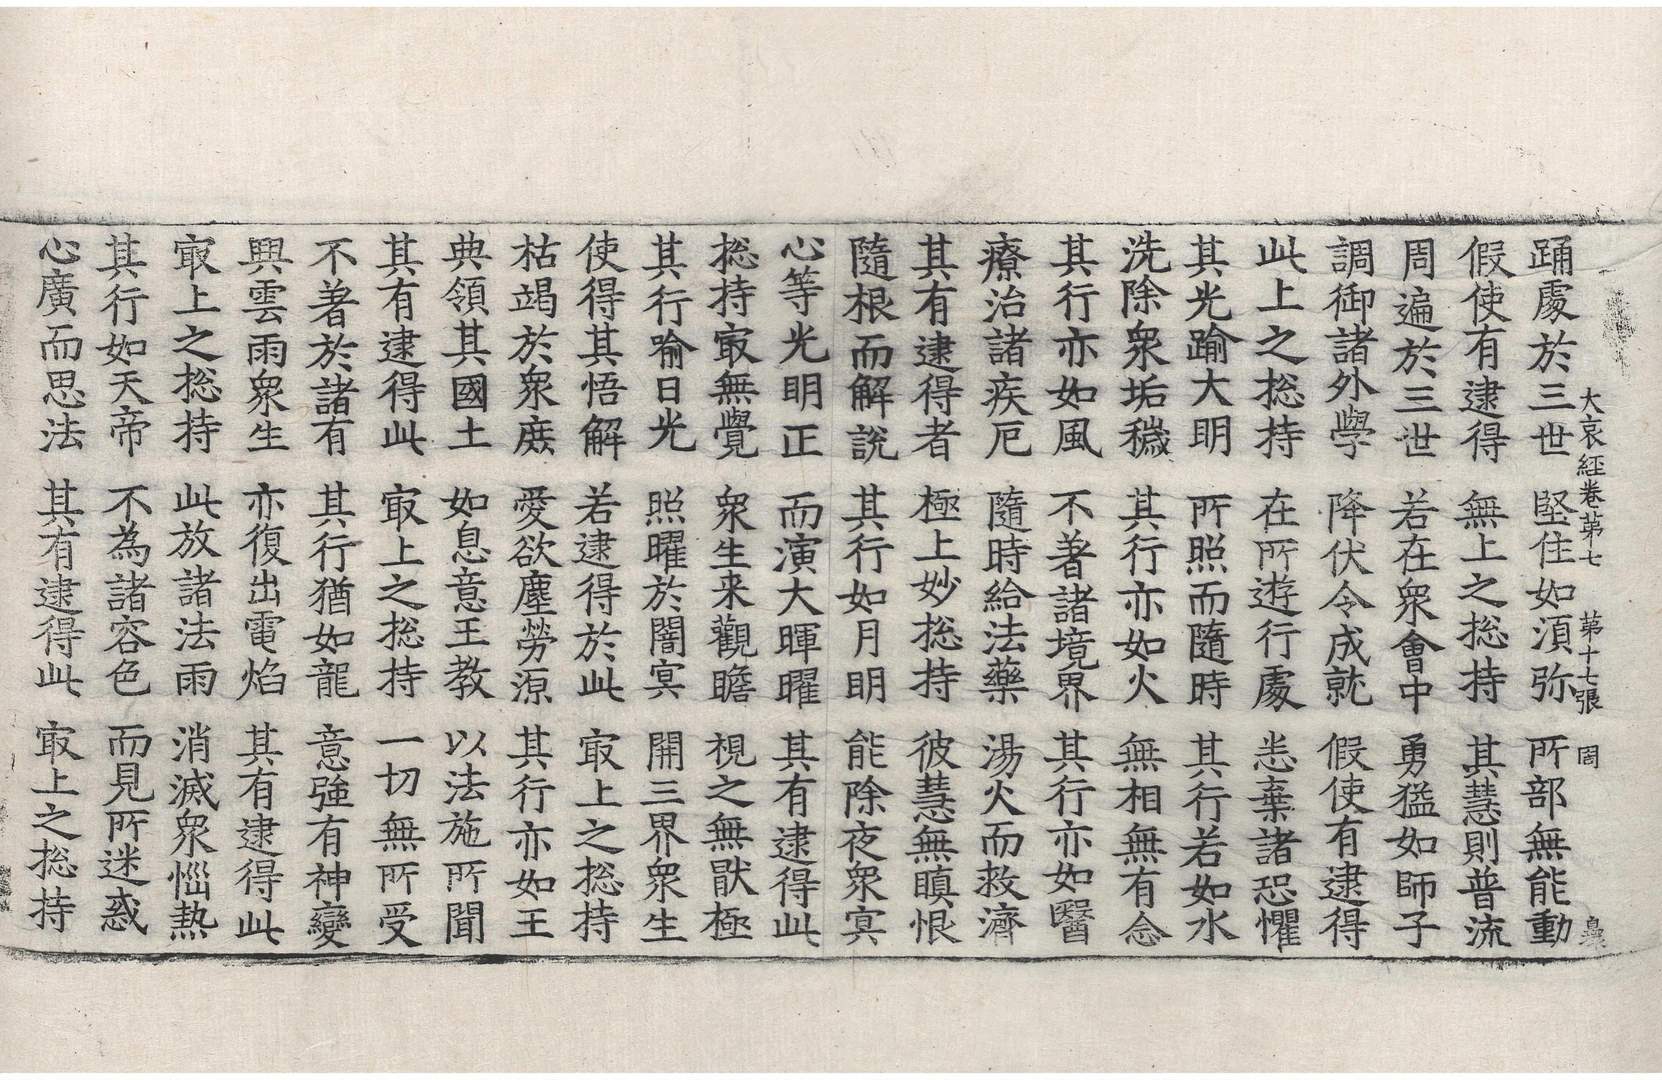 大哀經卷第七　第十七張　周　臯
踊處於三世　堅住如須弥　所部無能動
假使有逮得　無上之捴持　其慧則普流
周遍於三世　若在衆會中　勇猛如師子
調御諸外學　降伏令成就　假使有逮得
此上之捴持　在所遊行處　恙棄諸恐懼
其光踰大明　所照而隨時　其行若如水
洗除衆垢穢　其行亦如火　無相無有念
其行亦如風　不著諸境界　其行亦如醫
療治諸疾厄　隨時給法藥　湯火而救濟
其有逮得者　極上妙捴持　彼慧無瞋恨
隨根而解說　其行如月明　能除夜衆冥
心等光明正　而演大暉曜　其有逮得此
捴持㝡無覺　衆生来觀瞻　視之無猒極
其行喻日光　照曜於闇冥　開三界衆生
使得其悟解　若逮得於此　㝡上之捴持
枯竭於衆庶　愛欲塵勞源　其行亦如王
典領其國土　如息意王教　以法施所聞
其有逮得此　㝡上之捴持　一切無所受
不著於諸有　其行猶如龍　意強有神變
興雲雨衆生　亦復出電焰　其有逮得此
㝡上之捴持　此放諸法雨　消滅衆惱熱
其行如天帝　不為諸容色　而見所迷惑
心廣而思法　其有逮得此　㝡上之捴持